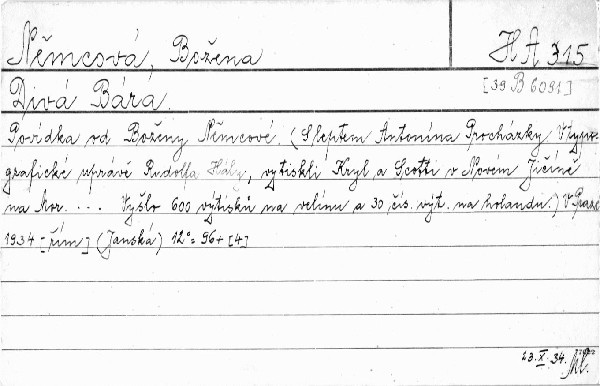 Němcová, Božena
HA 315
[39 B 6091]
Divá Bára.
Povídka od Boženy Němcové. (S leptem Antonína Procházky. V typo-
grafické úpravě Rudolfa Hály, vytiskli Kryl a Scotti v Novém Jičíně
na Mor. ... Vyšlo 600 výtisků na velínu a 30 čís. výt. na holandu.) V Praze
1934 [řím] (Janská) 12° = 96 + [4]
23. X. 34.